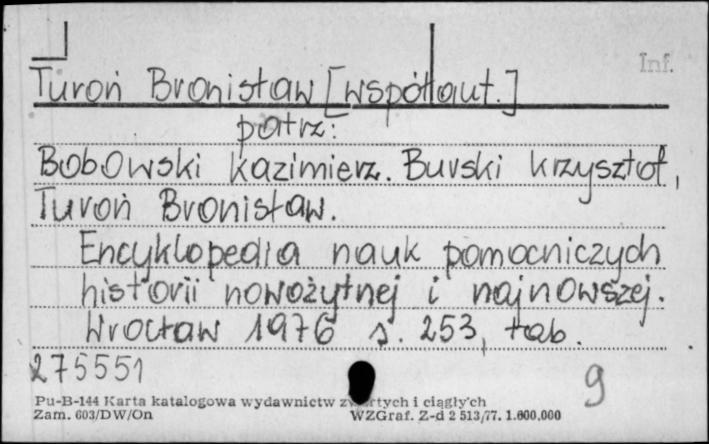 Inf.
Turoń Bronisław [współaut.]
patrz:
Bobowski Kazimierz. Burski Krzysztof,
Turoń Bronisław.
Encyklopedia nauk pomocniczych
historii nowożytnej i najnowszej.
Wrocław 1976 s. 253, tab.
275551
9
Pu-B-144 Karta katalogowa wydawnictw i ciągłych
Zam. 603/DW/On WZGraf. Z-d 2 513/77. 1.000.000